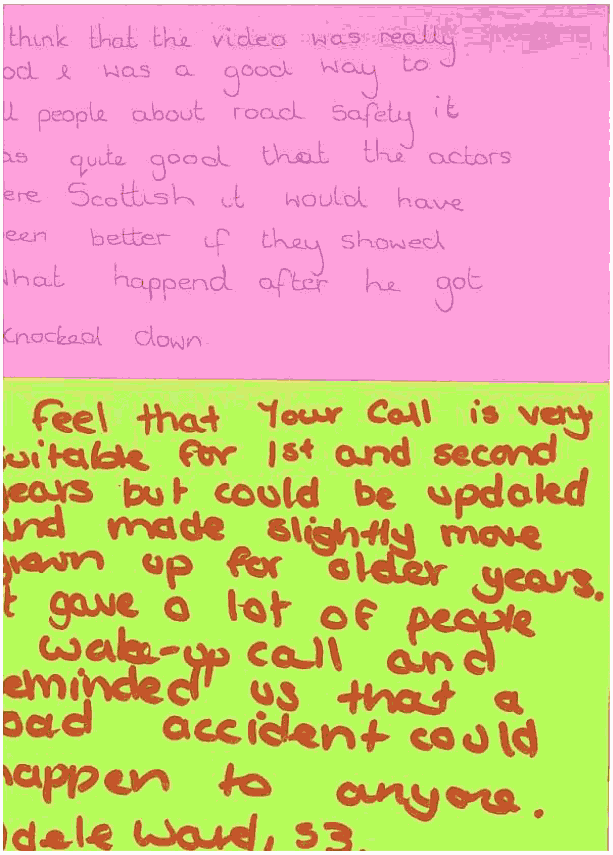 think that the video was really
od & was a good way to
ll people about road safety it
as quite good that the actors
ere Scottish it would have
een better if they showed
what happend after he got
knocked down
feel that Your Call is very
uitable for 1st and second
years but could be updated
and made slightly more
grown up for older years.
t gave a lot of people
wake-up call and
eminded us that a
oad accident could
happen to anyone.
dele Ward, S3.